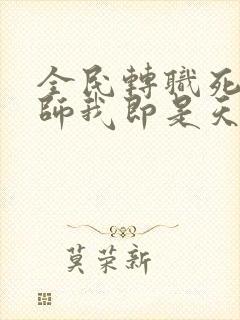 全民轉職死
師我即是天
莫荣新